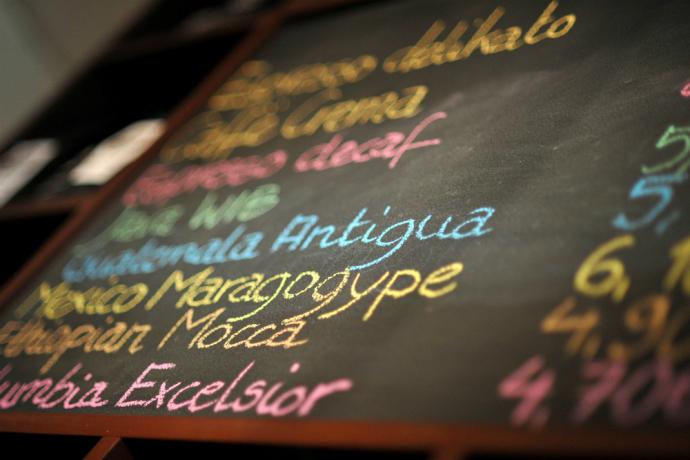 Espresso delikato
Caffe Crema
Espresso decaf
Java WIB 5,
Guatemala Antigua 5,
Mexico Maragogype 6,
Ethiopian Mocca 4,90
lumbia Excelsior 4,70